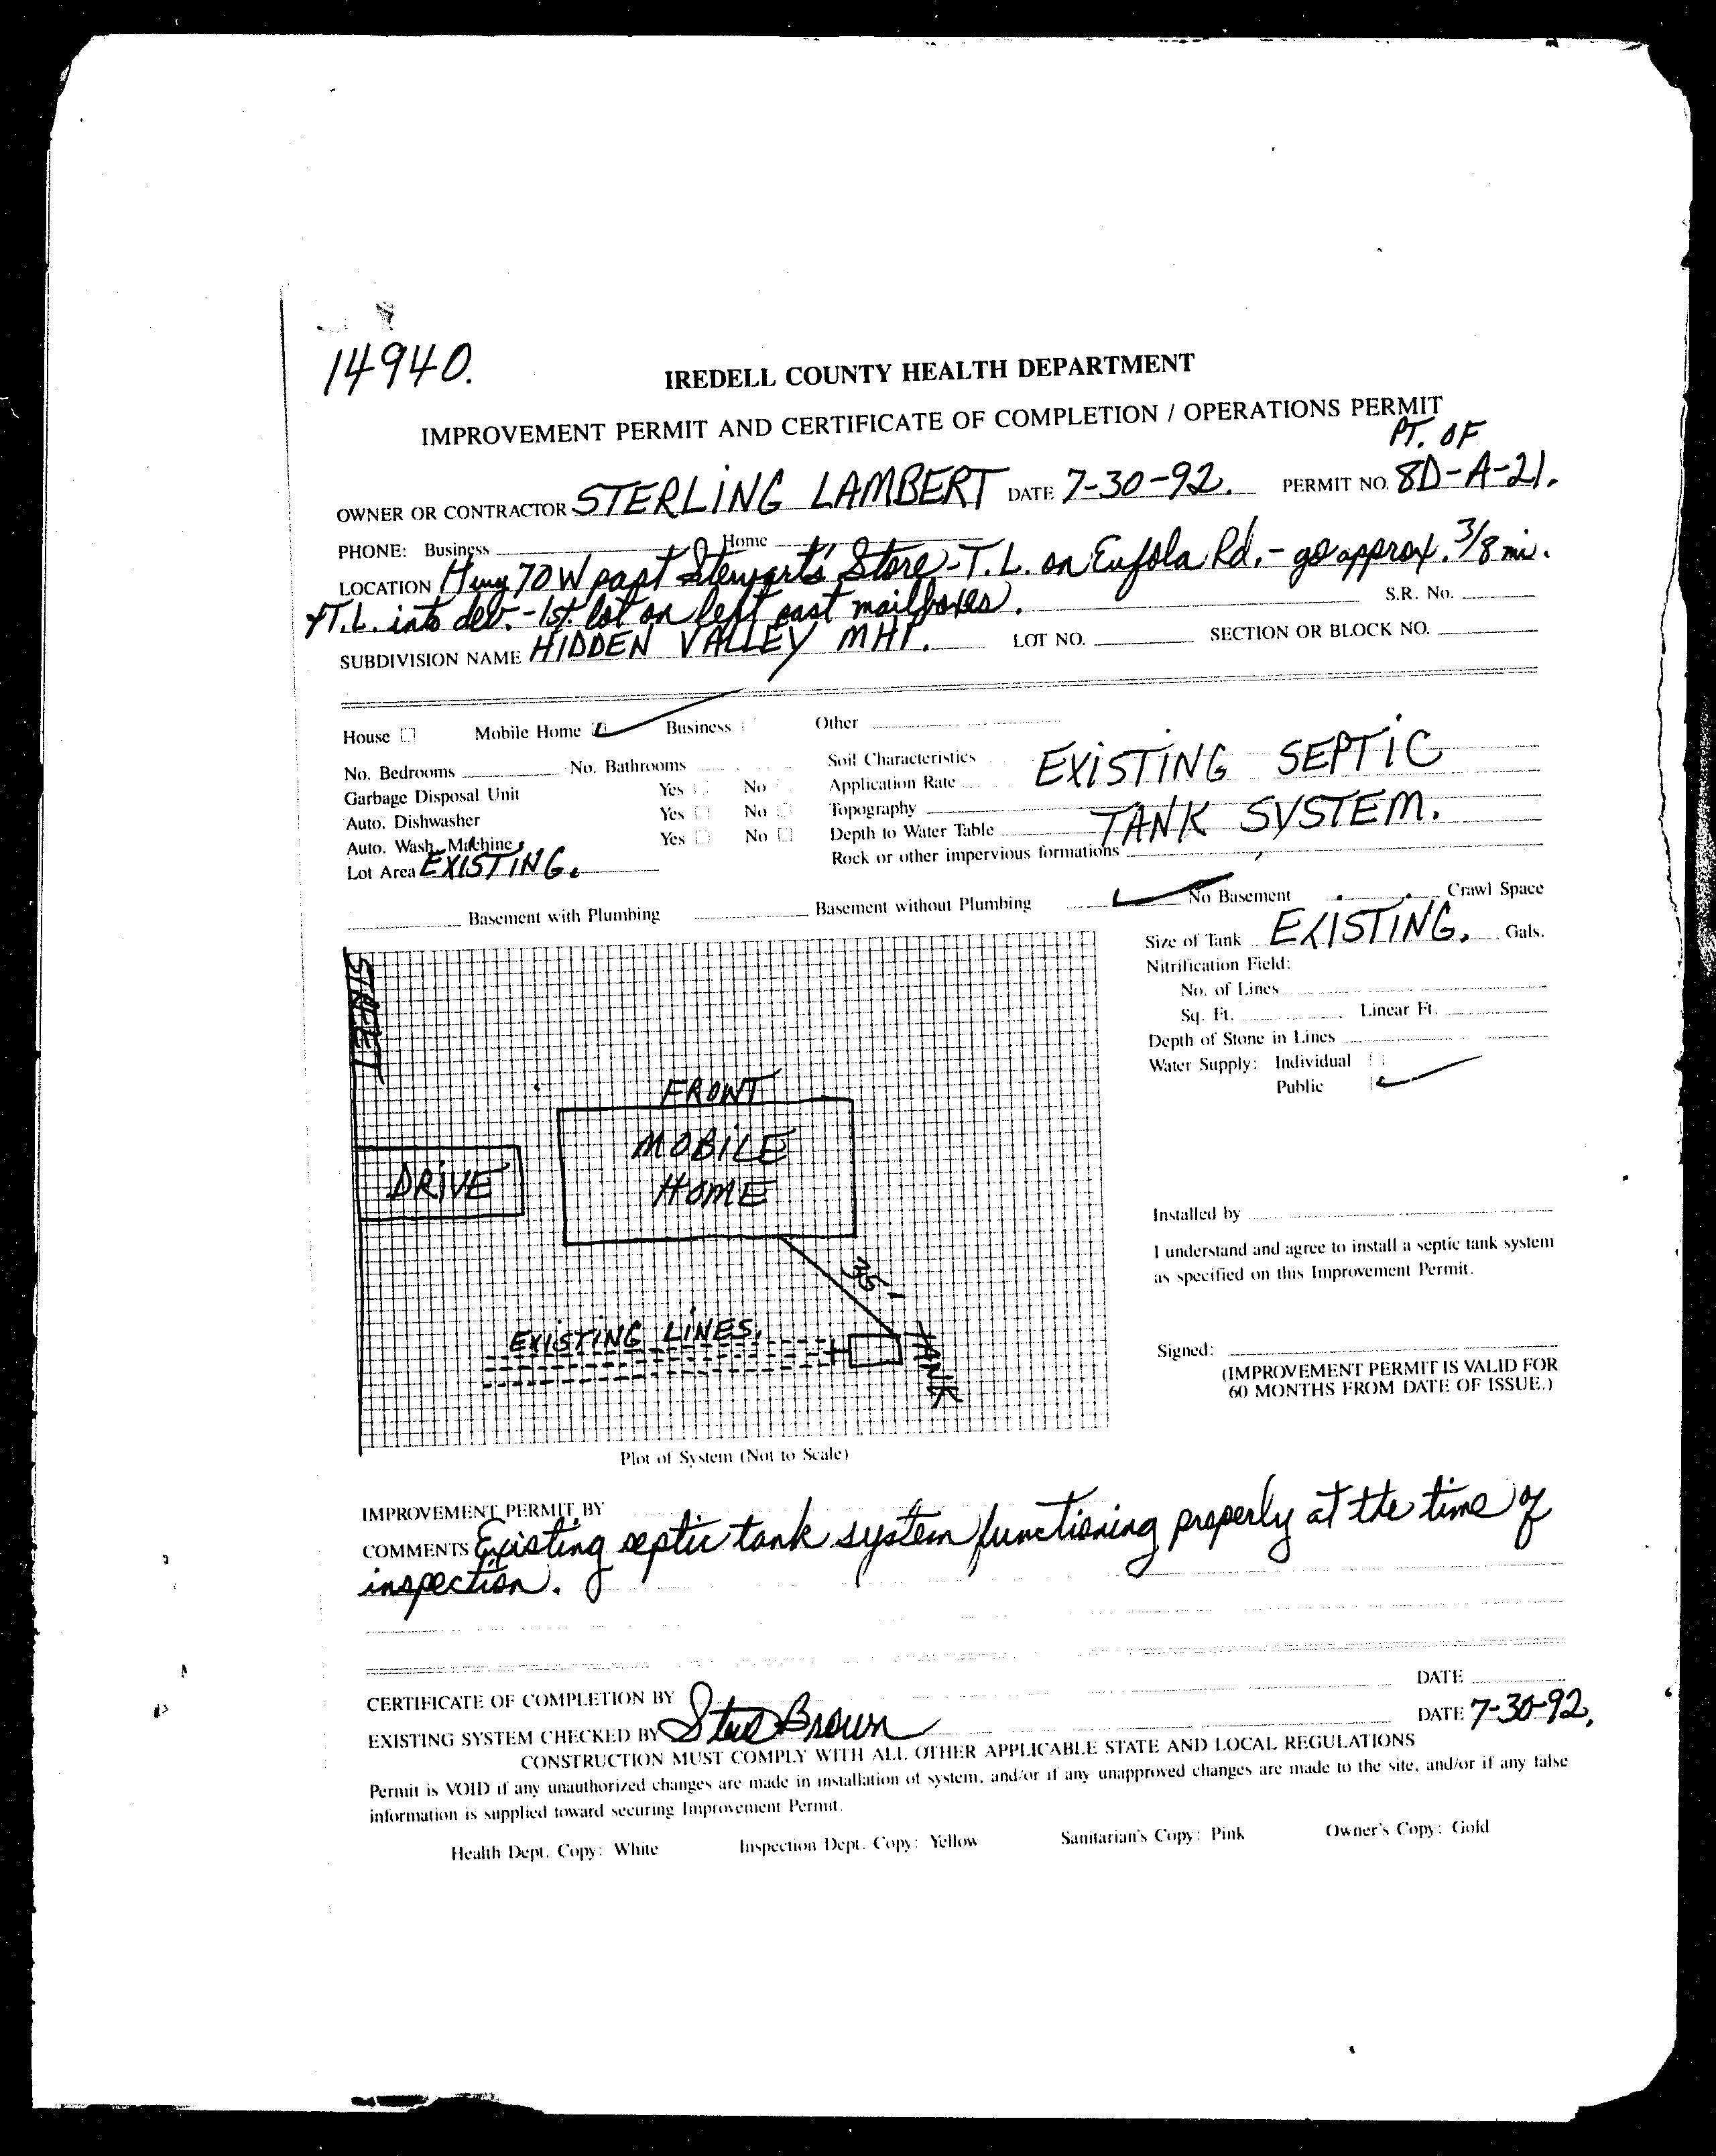 14940.
IREDELL COUNTY HEALTH DEPARTMENT
IMPROVEMENT PERMIT AND CERTIFICATE OF COMPLETION / OPERATIONS PERMIT
PT. OF
OWNER OR CONTRACTOR STERLING LAMBERT DATE 7-30-92. PERMIT NO. 8D-A-21.
PHONE: Business Home
LOCATION Hwy 70 W past Stewart's Store - T.L. on Eufola Rd. - go approx. 3/8 mi.
+T.L. into dev. - 1st lot on left past mailboxes. S.R. No.
SUBDIVISION NAME HIDDEN VALLEY MHP. LOT NO. SECTION OR BLOCK NO.
House Mobile Home Business Other
No. Bedrooms No. Bathrooms Soil Characteristics EXISTING SEPTIC
Garbage Disposal Unit Yes No Application Rate
Auto. Dishwasher Yes No Topography TANK SYSTEM.
Auto. Wash Machine Yes No Depth to Water Table
Lot Area EXISTING. Rock or other impervious formations
Basement with Plumbing Basement without Plumbing No Basement Crawl Space
Size of Tank EXISTING. Gals.
Nitrification Field:
No. of Lines
Sq. Ft. Linear Ft.
Depth of Stone in Lines
Water Supply: Individual
Public
STREET
FRONT
MOBILE
HOME
DRIVE
35'
EXISTING LINES.
TANK
Installed by
I understand and agree to install a septic tank system
as specified on this Improvement Permit.
Signed:
(IMPROVEMENT PERMIT IS VALID FOR
60 MONTHS FROM DATE OF ISSUE.)
Plot of System (Not to Scale)
IMPROVEMENT PERMIT BY
COMMENTS Existing septic tank system functioning properly at the time of
inspection.
CERTIFICATE OF COMPLETION BY DATE
EXISTING SYSTEM CHECKED BY Steve Brown DATE 7-30-92.
CONSTRUCTION MUST COMPLY WITH ALL OTHER APPLICABLE STATE AND LOCAL REGULATIONS
Permit is VOID if any unauthorized changes are made in installation of system, and/or if any unapproved changes are made to the site, and/or if any false
information is supplied toward securing Improvement Permit.
Health Dept. Copy: White Inspection Dept. Copy: Yellow Sanitarian's Copy: Pink Owner's Copy: Gold